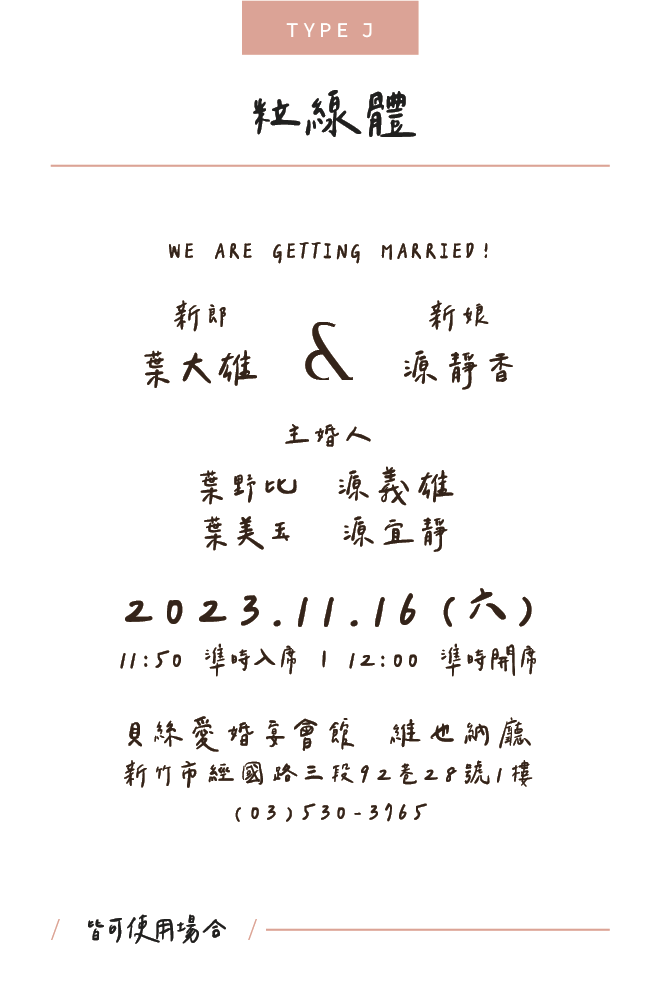 TYPE J
粒線體
WE ARE GETTING MARRIED!
新郎 新娘
葉大雄 & 源靜香
主婚人
葉野比 源義雄
葉美玉 源宜靜
2023.11.16(六)
11:50 準時入席 | 12:00 準時開席
貝絲愛婚宴會館 維也納廳
新竹市經國路三段92巷28號1樓
(03)530-3965
/ 皆可使用場合 /